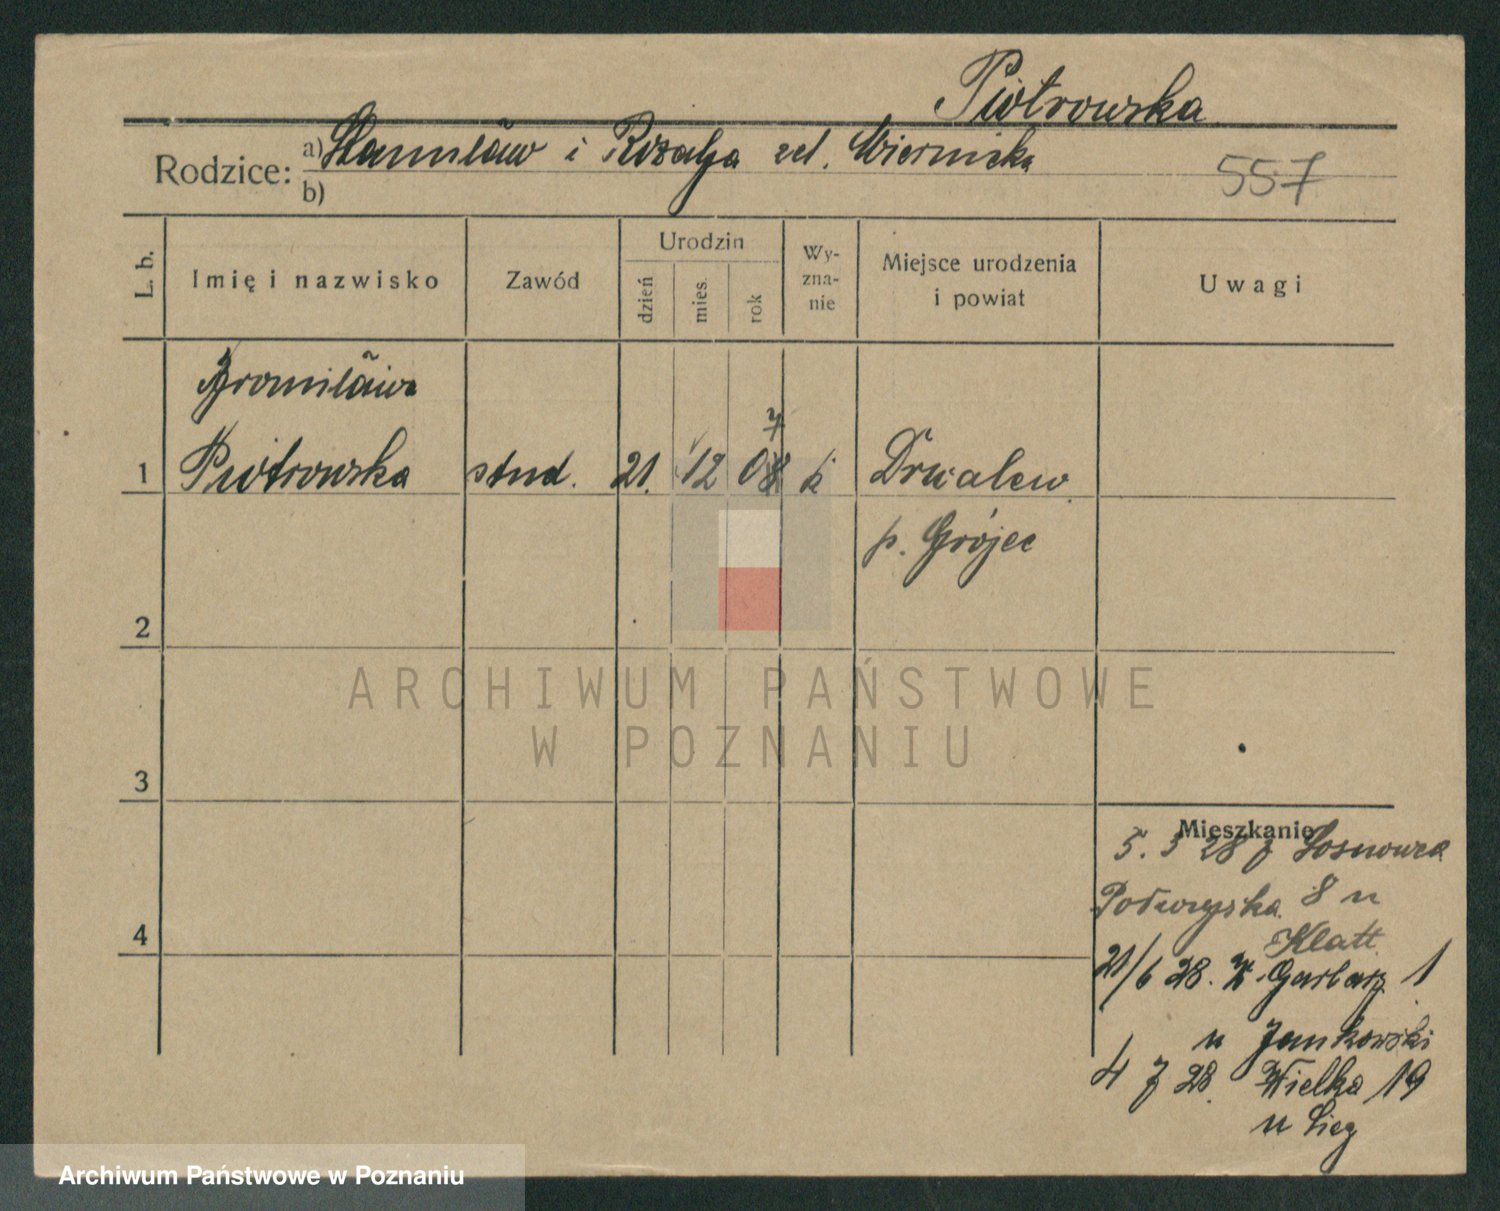 Piotrowska
Rodzice: a) Stanisław i Rozalja zd. Wiernicka
b)
557
L. b.
Imię i nazwisko
Zawód
Urodzin
dzień
mies.
rok
Wy-
zna-
nie
Miejsce urodzenia
i powiat
Uwagi
Bronisława
7
1 Piotrowska stud. 21. 12 08 k Drwalew
p. Grójec
2
3
4
Mieszkanie
5. 3 28 z Sosnowca
8 u
Klatt
21/6 28. Z. Garbary 1
u Jankowski
4 7 28. Wielka 19
u
ARCHIWUM PAŃSTWOWE
W POZNANIU
Archiwum Państwowe w Poznaniu